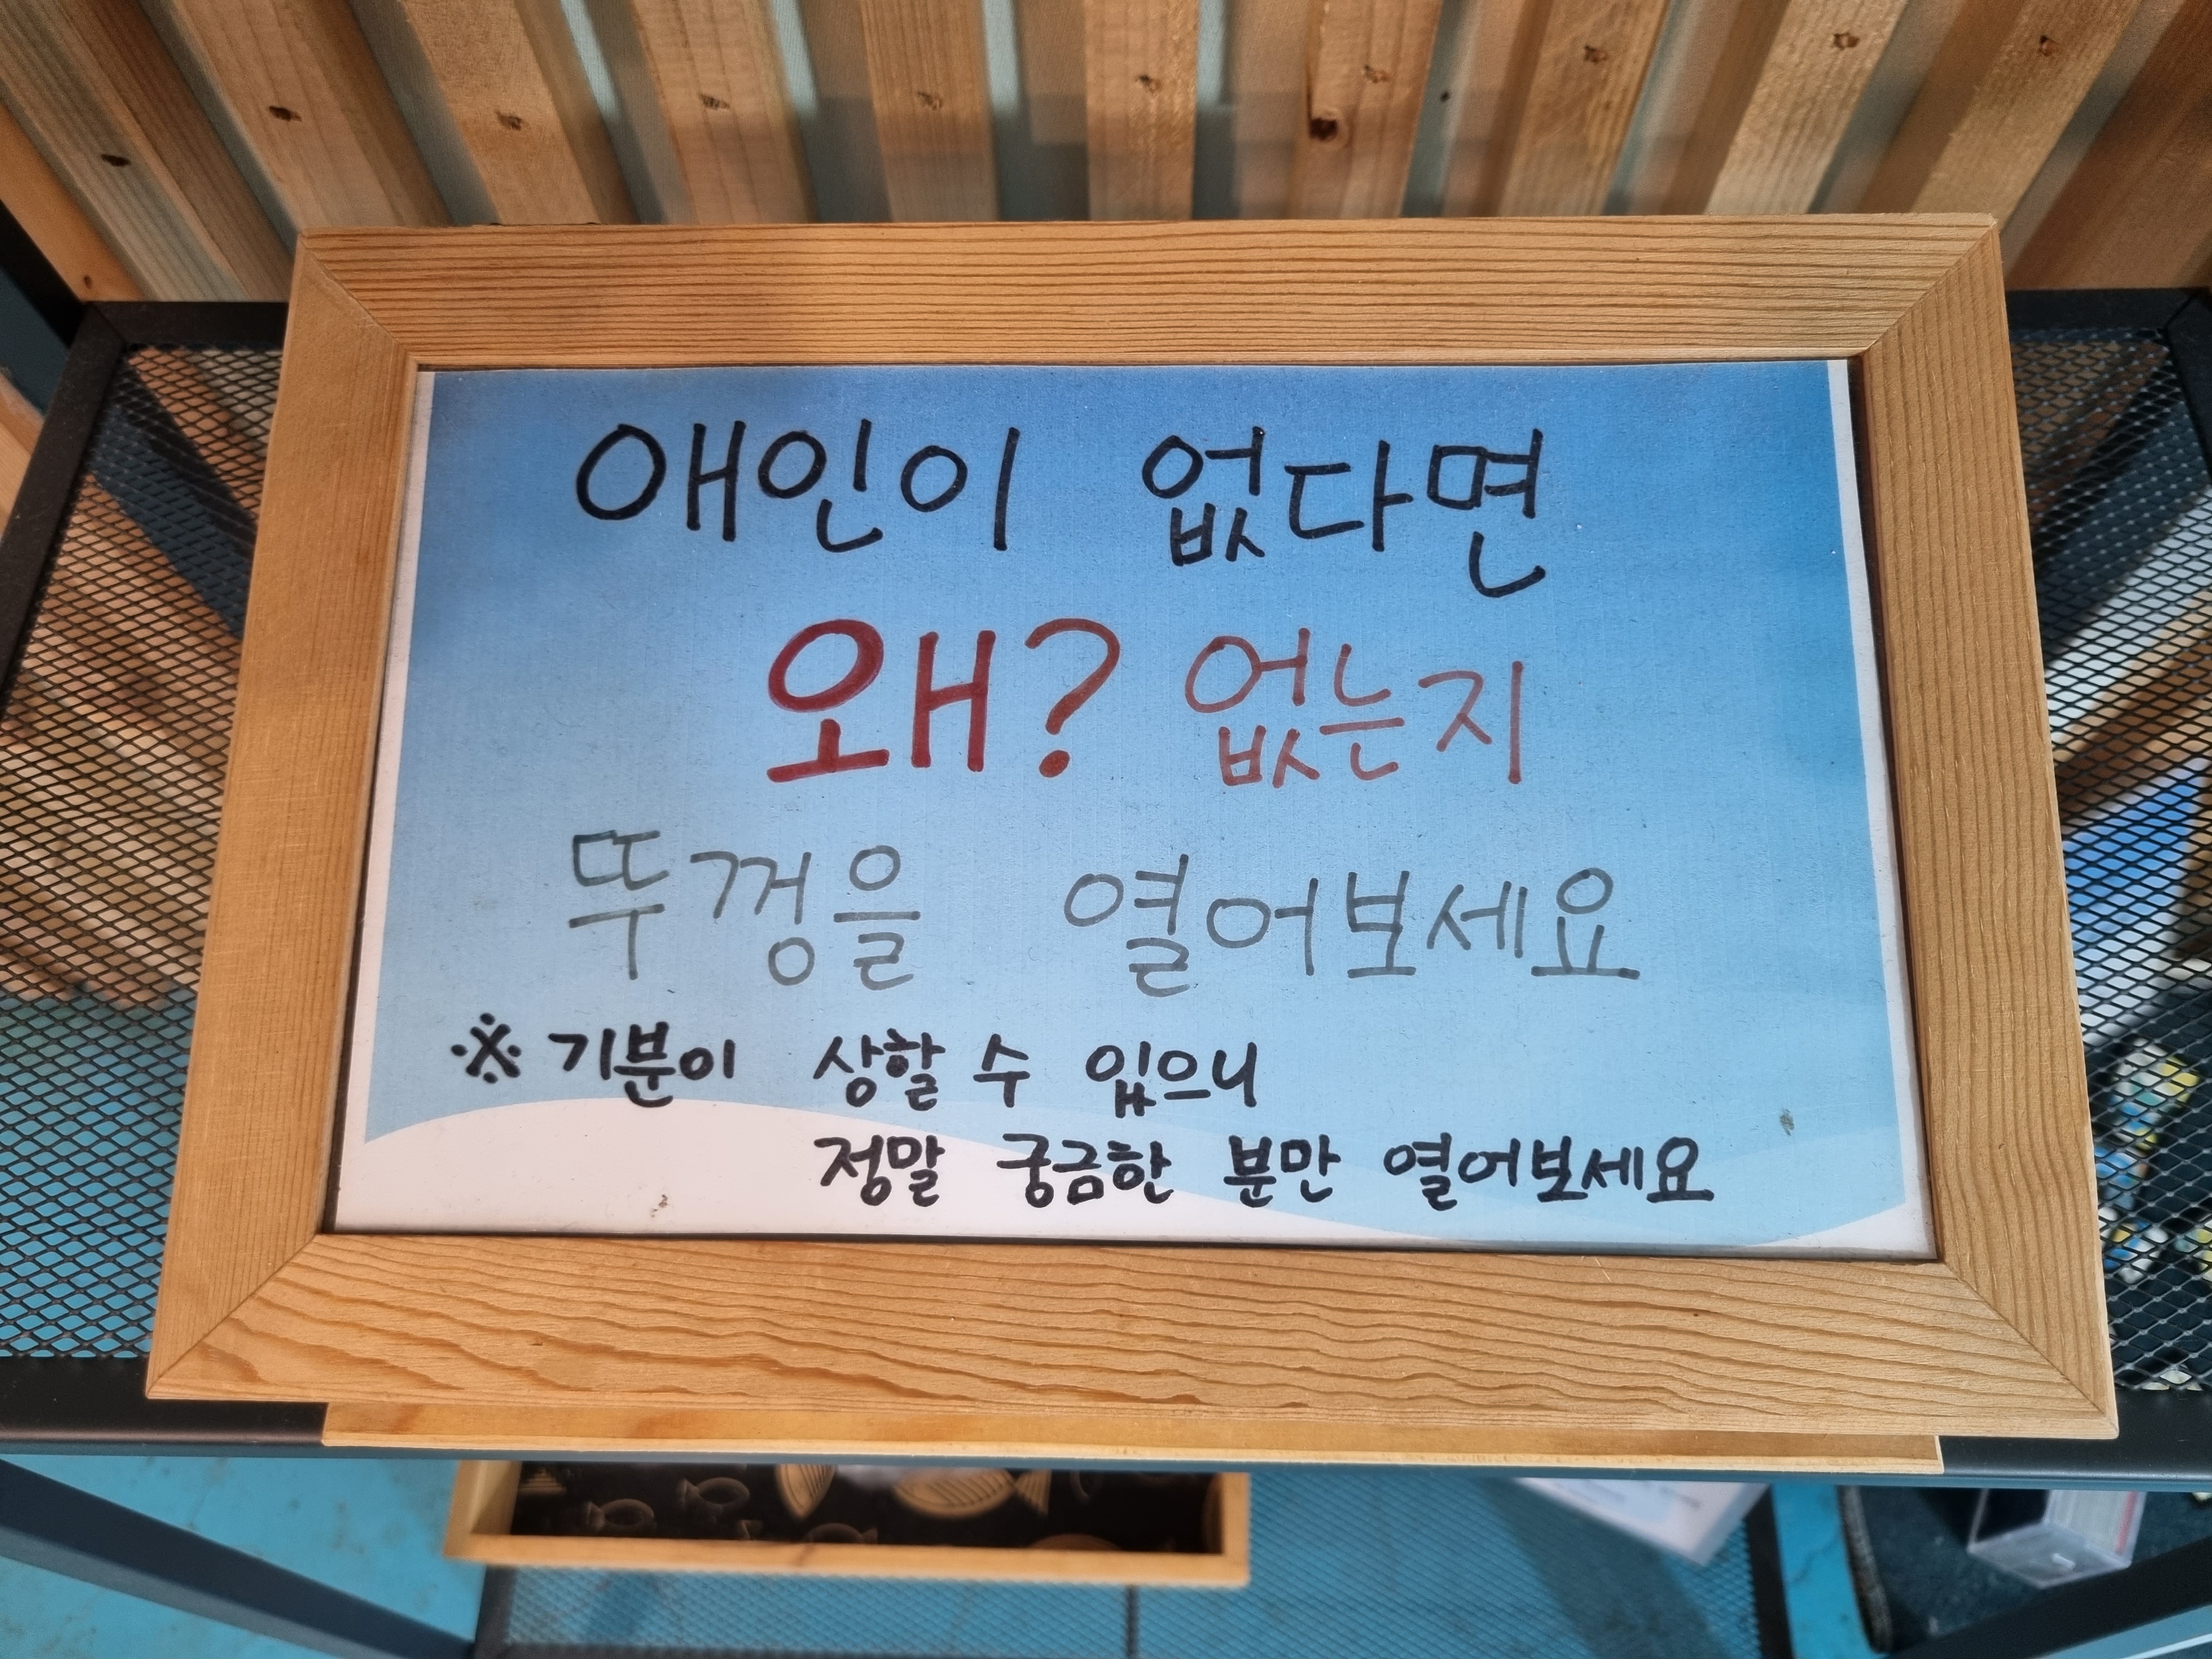 애인이 없다면
왜? 없는지
뚜껑을 열어보세요
※ 기분이 상할 수 있으니
정말 궁금한 분만 열어보세요